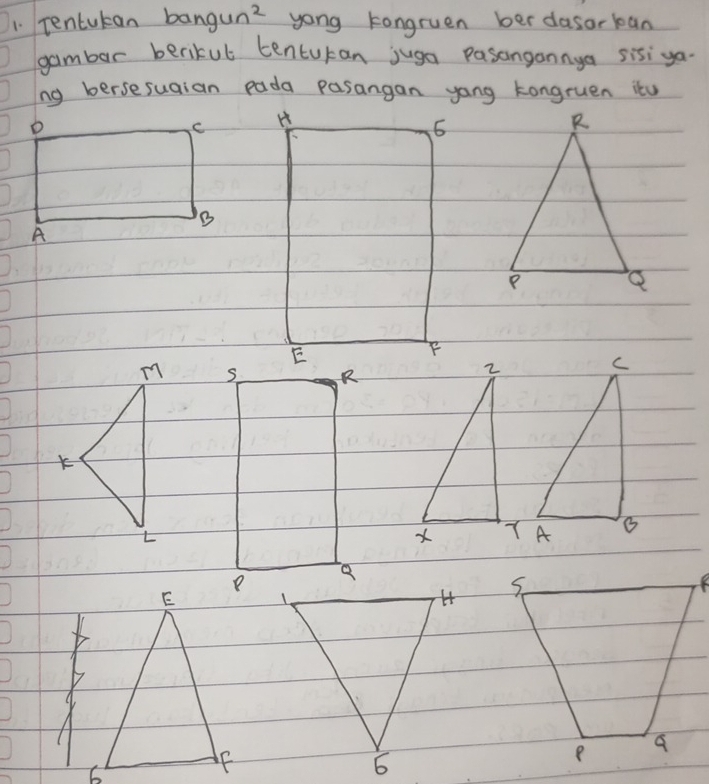 1. Tentukan bangun² yang kongruen berdasarkan
gambar berikut tentukan juga pasangannya sisi ya-
ng bersesuaian pada pasangan yang kongruen itu
D C H G R
A B
P Q
E F
M S R Z C
K
L X Y A B
P Q
E I H S R
G F G P Q